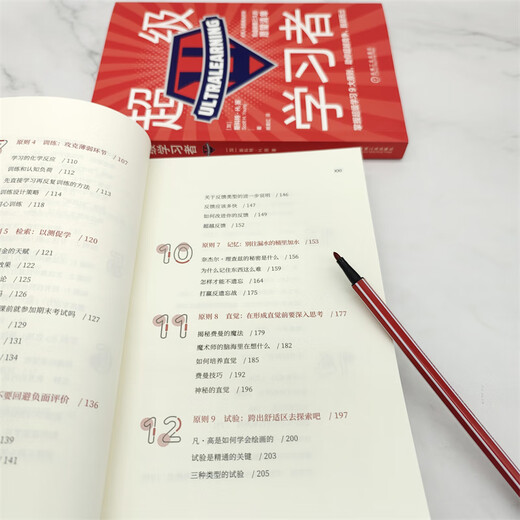 超级
学习者
ULTRALEARNING
级学习者
原则 4 训练：攻克薄弱环节 / 107
学习的化学反应 / 110
训练和认知负荷 / 112
先直接学习再反复训练的方法 / 113
训练设计策略 / 114
心训练 / 118
5 检索：以测促学 / 120
金的天赋
效果 / 122
课前就参加期末考试吗
/ 129
/ 130
/ 131
不要回避负面评价 / 136
/ 139
/ 141
XIII
关于反馈类型的进一步说明 / 146
反馈应该多快 / 147
如何改进你的反馈 / 149
超越反馈 / 152
10
原则 7 记忆：别往漏水的桶里加水 / 153
奈杰尔·理查兹的秘密是什么 / 156
为什么记住东西这么难 / 159
怎样才能不遗忘 / 164
打赢反遗忘战 / 175
11
原则 8 直觉：在形成直觉前要深入思考 / 177
揭秘费曼的魔法 / 179
魔术师的脑海里在想什么 / 182
如何培养直觉 / 185
费曼技巧 / 192
神秘的直觉 / 196
12
原则 9 试验：跨出舒适区去探索吧 / 197
凡·高是如何学会绘画的 / 200
试验是精通的关键 / 203
三种类型的试验 / 205